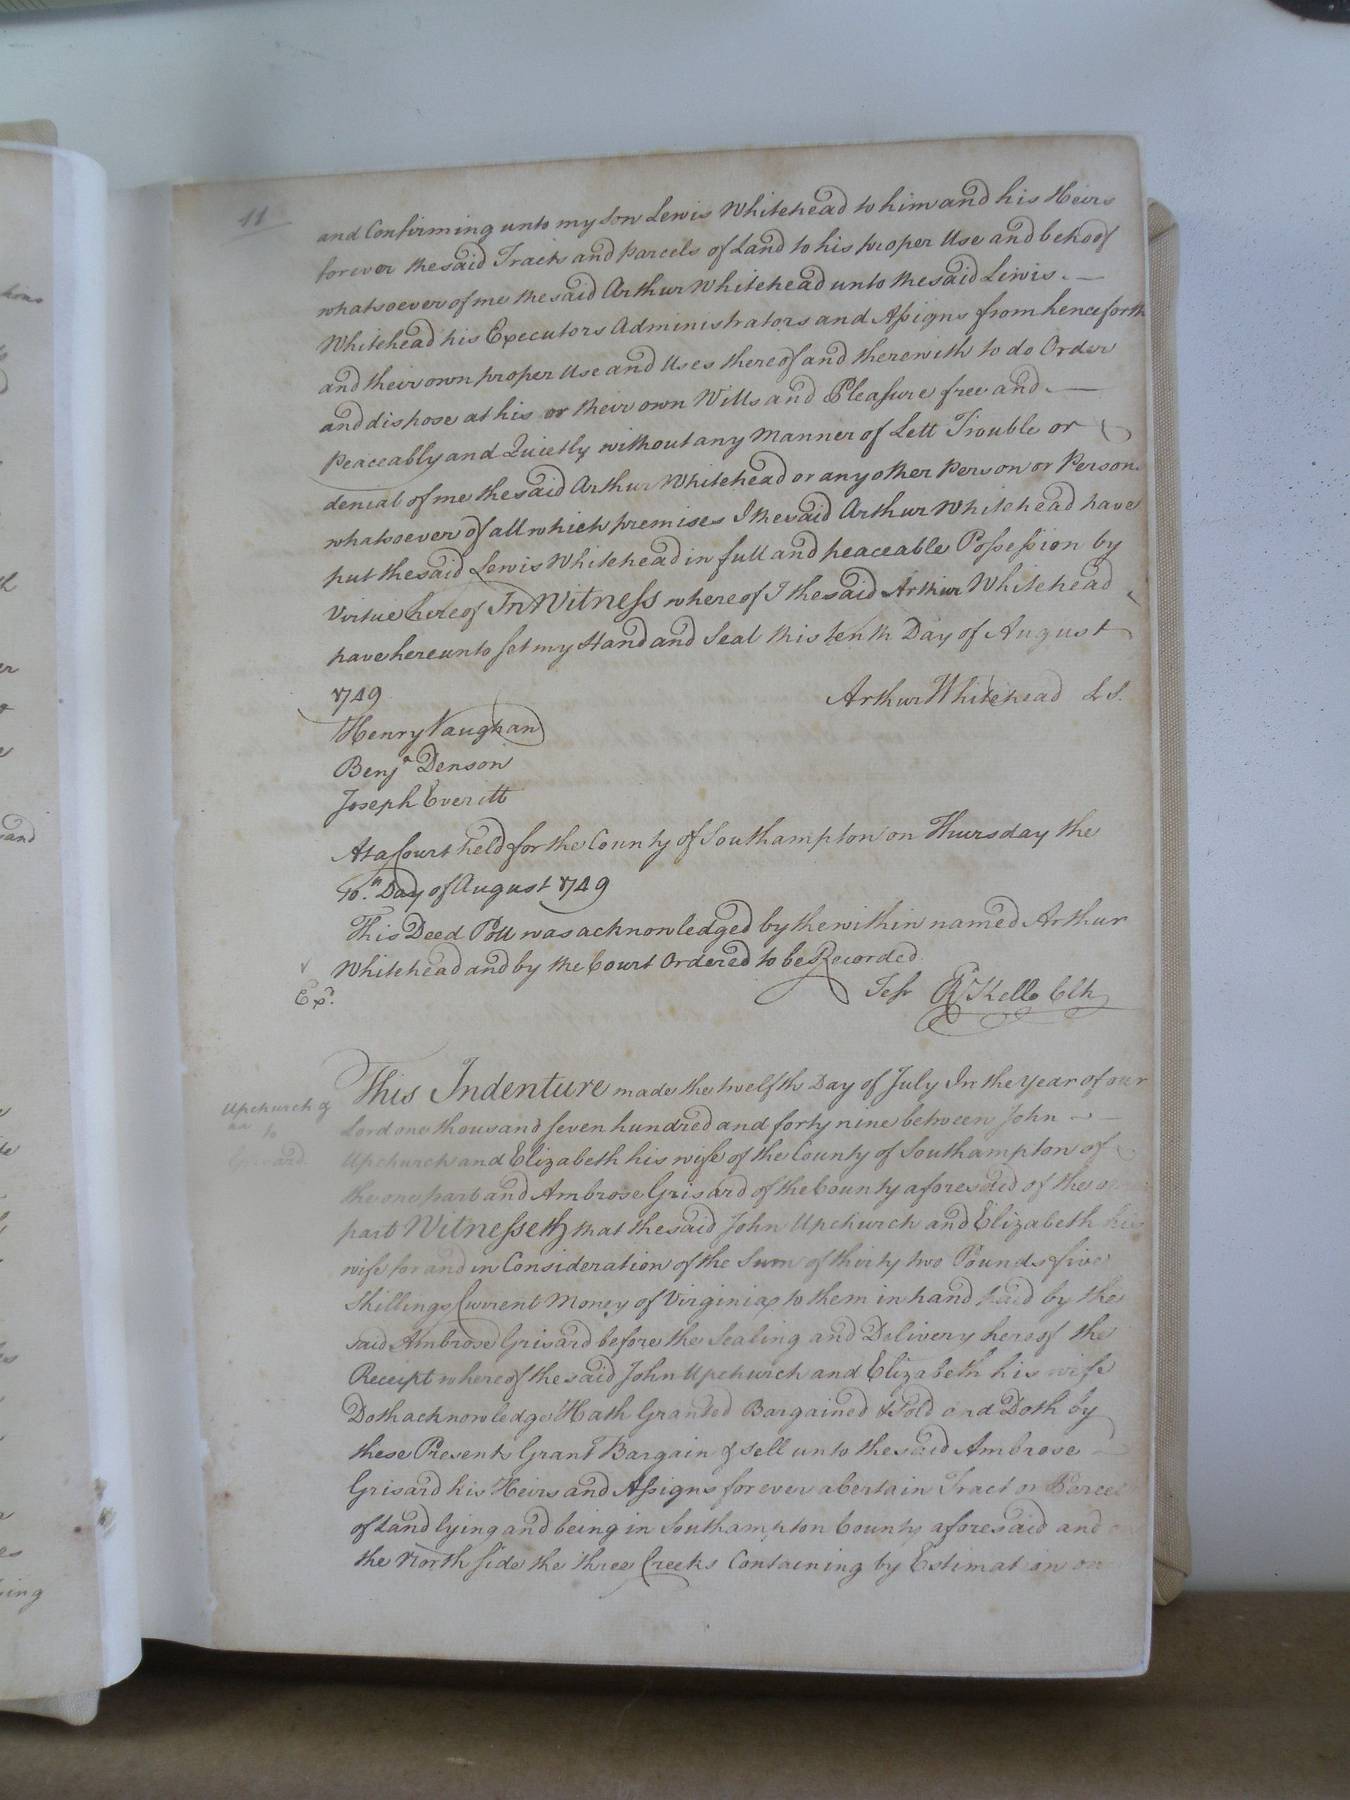 11
and Confirming unto my Son Lewis Whitehead to him and his Heirs
forever the said Tracts and Parcels of Land to his proper Use and behoof
whatsoever of me the said Arthur Whitehead unto the said Lewis
Whitehead his Executors Administrators and Assigns from henceforth
and their own proper Use and Uses thereof and therewith to do Order
and dispose at his or their own Wills and Pleasure free and
Peaceably and Quietly without any Manner of Lett Trouble or
denial of me the said Arthur Whitehead or any other Person or Persons
whatsoever of all which premises I the said Arthur Whitehead have
put the said Lewis Whitehead in full and peaceable Possession by
Virtue hereof In Witness whereof I the said Arthur Whitehead
have hereunto set my Hand and Seal this tenth Day of August
1749
Arthur Whitehead L S.
Henry Vaughan
Benja Denson
Joseph Everitt
At a Court held for the County of Southampton on Thursday the
10.th Day of August 1749
This Deed Poll was acknowledged by the within named Arthur
Whitehead and by the Court Ordered to be Recorded.
Exd.
Test Rd Kello Clk
Upchurch &
to
Grisard
This Indenture made the twelfth Day of July In the Year of our
Lord one thousand seven hundred and forty nine between John
Upchurch and Elizabeth his wife of the County of Southampton of
the one part and Ambrose Grisard of the County aforesaid of the
part Witnesseth that the said John Upchurch and Elizabeth his
wife for and in Consideration of the Sum of thirty two Pounds five
Shillings Current Money of Virginia to them in hand paid by the
said Ambrose Grisard before the Sealing and Delivery hereof the
Receipt whereof the said John Upchurch and Elizabeth his wife
Doth acknowledge Hath Granted Bargained & Sold and Doth by
these Presents Grant Bargain & Sell unto the said Ambrose
Grisard his Heirs and Assigns forever a Certain Tract or Parcel
of Land lying and being in Southampton County aforesaid and
the North side the three Creeks Containing by Estimation